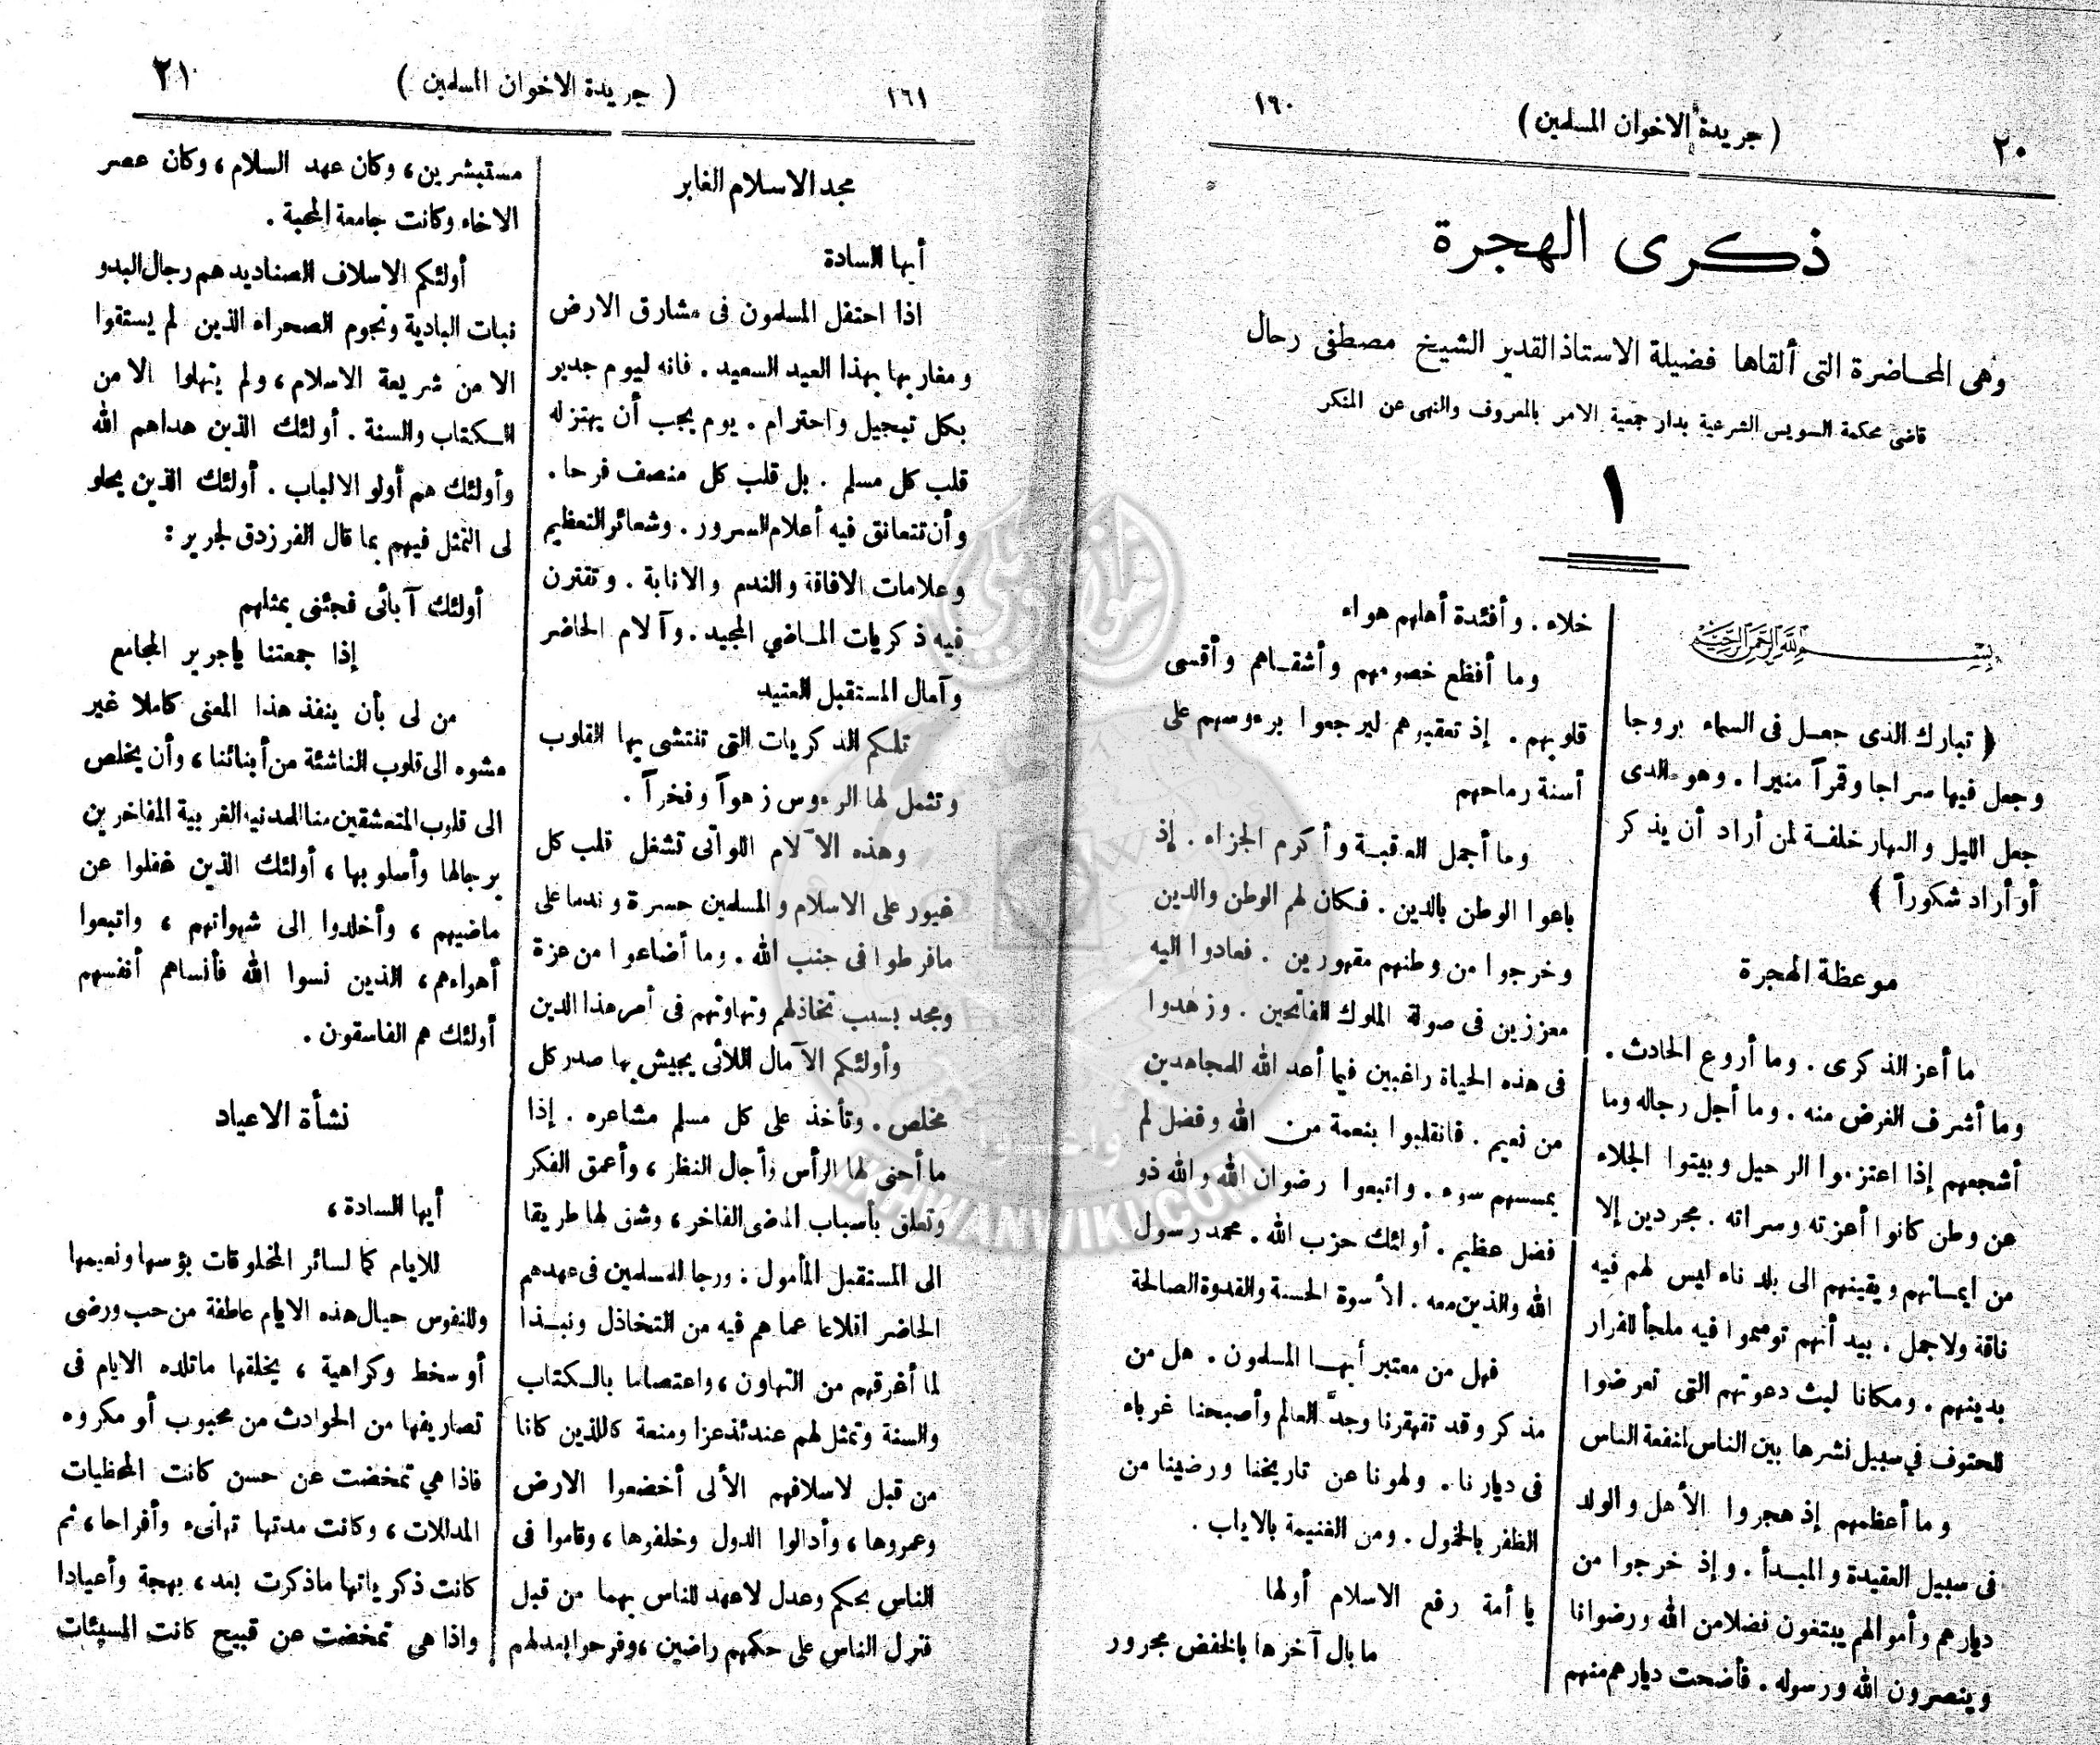 ٢٠
( جريدة الاخوان المسلمين )
١٦٠
ذكرى الهجرة
وهى المحاضرة التى ألقاها فضيلة الاستاذ القدير الشيخ مصطفى رحال
قاضى محكمة السويس الشرعية بدار جمعية الامر بالمعروف والنهى عن المنكر
١
بسم الله الرحمن الرحيم
﴿ تبارك الذى جعل فى السماء بروجا
وجعل فيها سراجا وقمرآ منيرا . وهو الذى
جعل الليل والنهار خلفة لمن أراد أن يذكر
أو أراد شكوراً ﴾
موعظة الهجرة
ما أعز الذكرى . وما أروع الحادث .
وما أشرف الغرض منه . وما أجل رجاله وما
أشجعهم إذا اعتزموا الرحيل وبيتوا الجلاء
عن وطن كانوا أعزته وسراته . مجردين إلا
من ايمانهم ويقينهم الى بلد ناء ليس لهم فيه
ناقة ولاجمل . بيد أنهم توسموا فيه ملجأ للفرار
بدينهم . ومكانا لبث دعوتهم التى تعرضوا
للحتوف في سبيل نشرها بين الناس لنفعة الناس
وما أعظمهم إذ هجروا الأهل والولد
فى سبيل العقيدة والمبدأ . وإذ خرجوا من
ديارهم وأموالهم يبتغون فضلا من الله ورضوانا
وينصرون الله ورسوله . فأضحت ديارهم منهم
خلاء . وأفئدة أهلهم هواء
وما أفظع خصومهم وأشقاهم وأقسى
قلوبهم . إذ تعقبرهم ليرجعوا برءوسهم على
أسنة رماحهم
وما أجمل العقبة وأكرم الجزاء . إذ
باعوا الوطن بالدين . فكان لهم الوطن والدين
وخرجوا من وطنهم مقهورين . فعادوا اليه
معززين فى صولة الملوك الفاتحين . وزهدوا
فى هذه الحياة راغبين فيما أعد الله للمجاهدين
من نعيم . فانقلبوا بنعمة من الله وفضل لم
يمسسهم سوء . واتبعوا رضوان الله والله ذو
فضل عظيم . أولئك حزب الله . محمد رسول
الله والذين معه . الأسوة الحسنة والقدوة الصالحة
فهل من معتبر أيها المسلمون . هل من
مذكر وقد تقهقرنا وجدَّ العالم وأصبحنا غرباء
فى ديارنا . ولهونا عن تاريخنا ورضينا من
الظفر بالخمول . ومن الغنيمة بالاياب .
يا أمة رفع الاسلام أولها
ما بال آخرها بالخفض مجرور
١٦١
( جريدة الاخوان المسلمين )
٢١
مجد الاسلام الغابر
أيها السادة
اذا احتفل المسلمون فى مشارق الارض
ومغاربها بهذا العيد السعيد . فانه ليوم جدير
بكل تبجيل واحترام . يوم يجب أن يهتز له
قلب كل مسلم . بل قلب كل منصف فرحا .
وأن تتعانق فيه أعلام السرور . وشعائر التعظيم
وعلامات الافاقة والندم والانابة . وتقترن
فيه ذكريات الماضي المجيد . وآلام الحاضر
وآمال المستقبل العتيد
تلكم الذكريات التى تنتشى بها القلوب
وتثمل لها الرءوس زهوآ وفخرآ .
وهذه الآلام اللواتى تشغل قلب كل
غيور على الاسلام والمسلمين حسرة وندما على
مافرطوا فى جنب الله . وما أضاعوا من عزة
ومجد بسبب تخاذلهم وتهاونهم فى أمر هذا الدين
وأولئكم الآمال اللائى يجيش بها صدر كل
مخلص . وتأخذ على كل مسلم مشاعره . إذا
ما أحنى لها الرأس وأجال النظر ، وأعمق الفكر
وتعلق بأسباب الماضى الفاخر ، وشق لها طريقا
الى المستقبل المأمول : ورجا للمسلمين فى عهدهم
الحاضر اقلاعا عما هم فيه من التخاذل ونبذا
لما أغرقهم من التهاون ، واعتصاما بالكتاب
والسنة وتمثل لهم عندئذ عزا ومنعة كاللذين كانا
من قبل لاسلافهم الألى أخضعوا الارض
وعمروها ، وأدالوا الدول وخلفوها ، وقاموا فى
الناس بحكم وعدل لاعهد للناس بهما من قبل
فنزل الناس على حكمهم راضين ، وفرحوا بعدلهم
مستبشرين ، وكان عهد السلام ، وكان عصر
الاخاء وكانت جامعة المحبة .
أولئكم الاسلاف الصناديد هم رجال البدو
نبات البادية ونجوم الصحراء الذين لم يستقوا
الا من شريعة الاسلام ، ولم ينهلوا الا من
الكتاب والسنة . أولئك الذين هداهم الله
وأولئك هم أولو الالباب . أولئك الذين يحلو
لى التمثل فيهم بما قال الفرزدق لجرير :
أولئك آبائى فجئنى بمثلهم
إذا جمعتنا ياجرير المجامع
من لى بأن ينفذ هذا المعنى كاملا غير
مشوه الى قلوب الناشئة من أبنائنا ، وأن يخلص
الى قلوب المتعشقين منا للمدنيه الغربية المفاخرين
برجالها وأسلوبها ، أولئك الذين غفلوا عن
ماضيهم ، وأخلدوا الى شهواتهم ، واتبعوا
أهواءهم ، الذين نسوا الله فأنساهم أنفسهم
أولئك هم الفاسقون .
نشأة الاعياد
أيها السادة ،
للايام كما لسائر المخلوقات بؤسها ونعيمها
وللنفوس حيال هذه الايام عاطفة من حب ورضى
أو سخط وكراهية ، يخلفها ماتلده الايام فى
تصاريفها من الحوادث من محبوب أو مكروه
فاذا هي تمخضت عن حسن كانت المحظيات
المدللات ، وكانت مدتها تهانىء وأفراحا ، ثم
كانت ذكرياتها ماذكرت بعد ، بهجة وأعيادا
واذا هى تمخضت عن قبيح كانت المسيئات
واخوان
IKHWANWIKI.COM